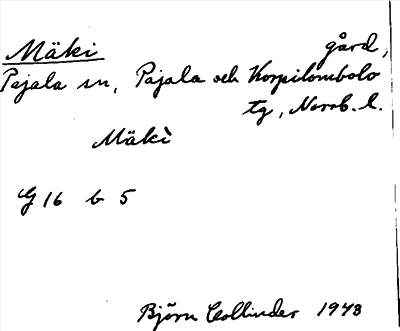 Mäki gård,
Pajala sn, Pajala och Korpilombolo
tg, Norrb. l.
Mäki
G 16 b 5
Björn Collinder 1943